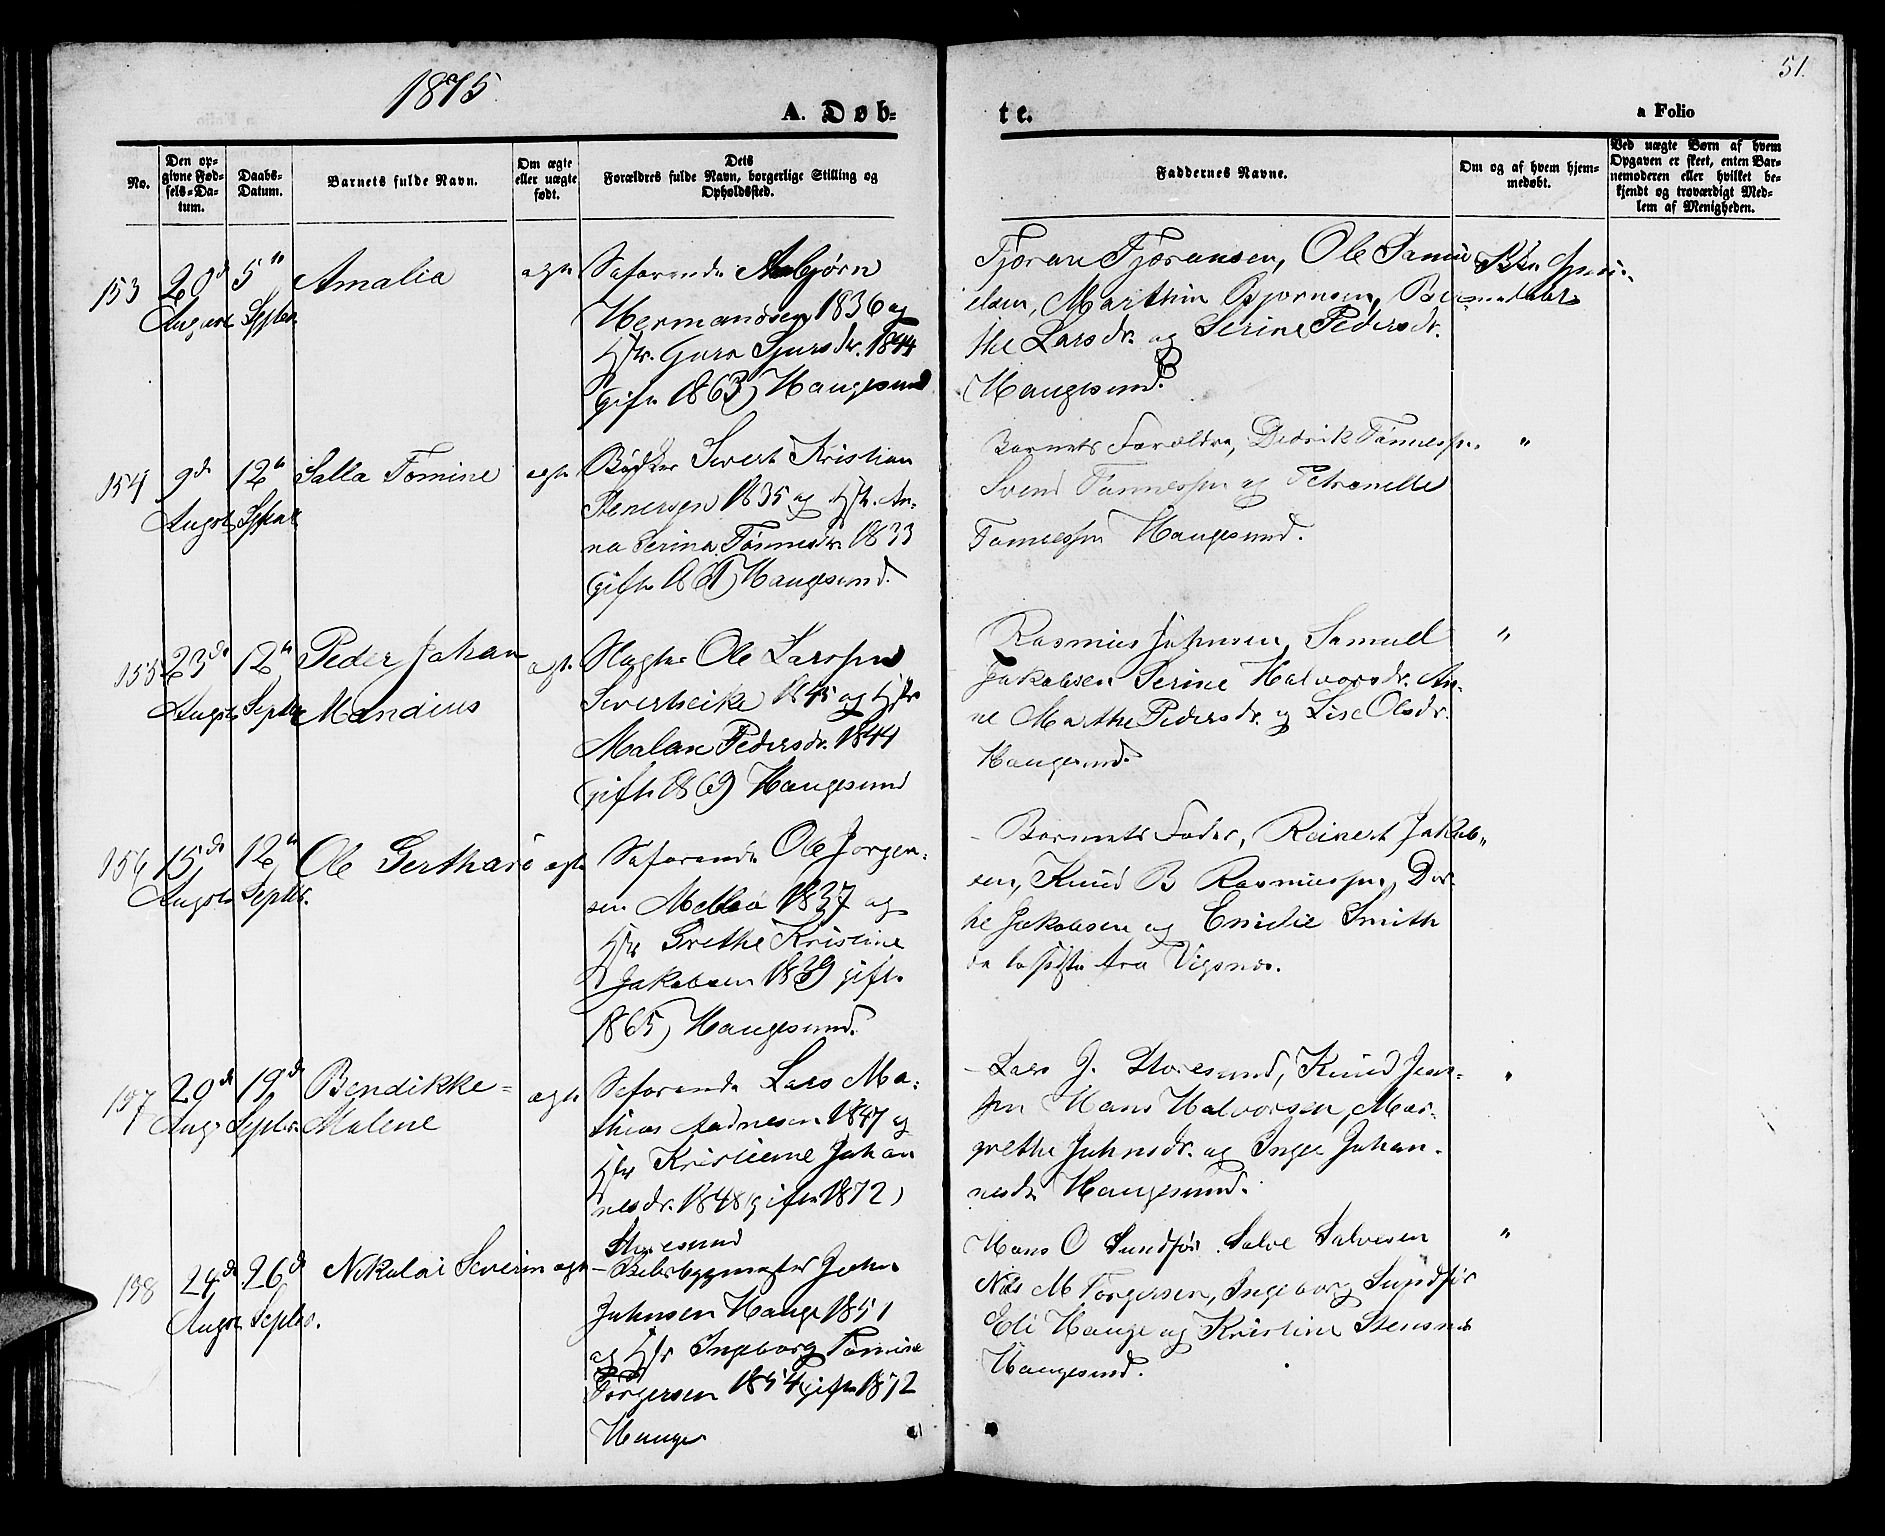 1875
51.
A. Døb-
te.
a Folio
No.
Den op-
givne Fød-
sels-Da-
tum.
Daabs-
Datum.
Barnets fulde Navn.
Om ægte
eller uægte
født.
Dets
Forældres fulde Navn, borgerlige Stilling og
Opholdssted.
Faddernes Navne.
Om og af hvem hjem-
medøbt.
Ved uægte Børn af hvem
Opgaven er skeet, enten Bar-
nemoderen eller hvilket be-
kjendt og troværdigt Med-
lem af Menigheden.
153
20de
August
5te
Septbr.
Amalia
ægte
Søfarende Asbjørn
Hermansen 1836 og
Hstr. Guro Sjursdr. 1844
gift 1863) Haugesund
Tjøran Tjøransen, Ole Samu
elsen, Marthin Bjørnsen, Ber-
the Larsdr. og Serine Pedersdr.
Haugesund.
154
9de
Augst
12te
Septbr
Salla Tomine
ægte
Bødker Sivert Kristian
Stenersen 1835 og Hstr. An-
na Serina Tønnesdr 1833
gift Haugesund.
Barnets Forældre, Didrik Tønnessen,
Svend Tønnessen og Petronelle
Tønnessen Haugesund.
"
155
23de
Augst
12te
Septbr
Peder Johan
Mandius
ægte
Slagter Ole Larssen
Sivertseike 1845 og Hstr
Malene Pedersdr. 1844
gift 1869) Haugesund
Rasmus Johnsen, Samuel
Jakobsen Serine Halvorsdr. An-
ne Marthe Pedersdr. og Lise Olsdr.
Haugesund.
"
156
15de
Augst
12te
Septbr.
Ole Gerthard
ægte
Søfarende Ole Jørgen-
sen 1837 og
Hstr Grethe Kristine
Jakobsen 1839 gift
1865) Haugesund.
- Barnets Fader, Reinert Jakob-
sen, Knud B Rasmussen, Dor-
the Jakobsen og Emilie Smith
de to sidste fra Vigsnæs.
157
20de
Aug.
19de
Septbr.
Bendikke-
Malene
ægte
Søfarende Lars Ma-
thias Aadnesen 1847 og
Hstr Kristiane Johan
nesdr. 1848 gift 1872)
Storesund
- Lars J. Storesund, Knud Jens-
sen Hans Halvorsen, Mar-
grethe Johnsdr. og Inger Johan-
nesdr Haugesund.
"
158
24de
Augst
26de
Septbr.
Nikolai Severin
ægte
- Skibsbygmester John
Johnsen Hauge 1851
og Hstr Ingeborg Tomine
Torgersen 1854 gift 1872
Hauge
Hans O Sundfør. Salve Salvesen
Nils M Torgersen, Ingeborg Sundfør
Eli Hauge og Kristine Stensnes
Haugesund.
"